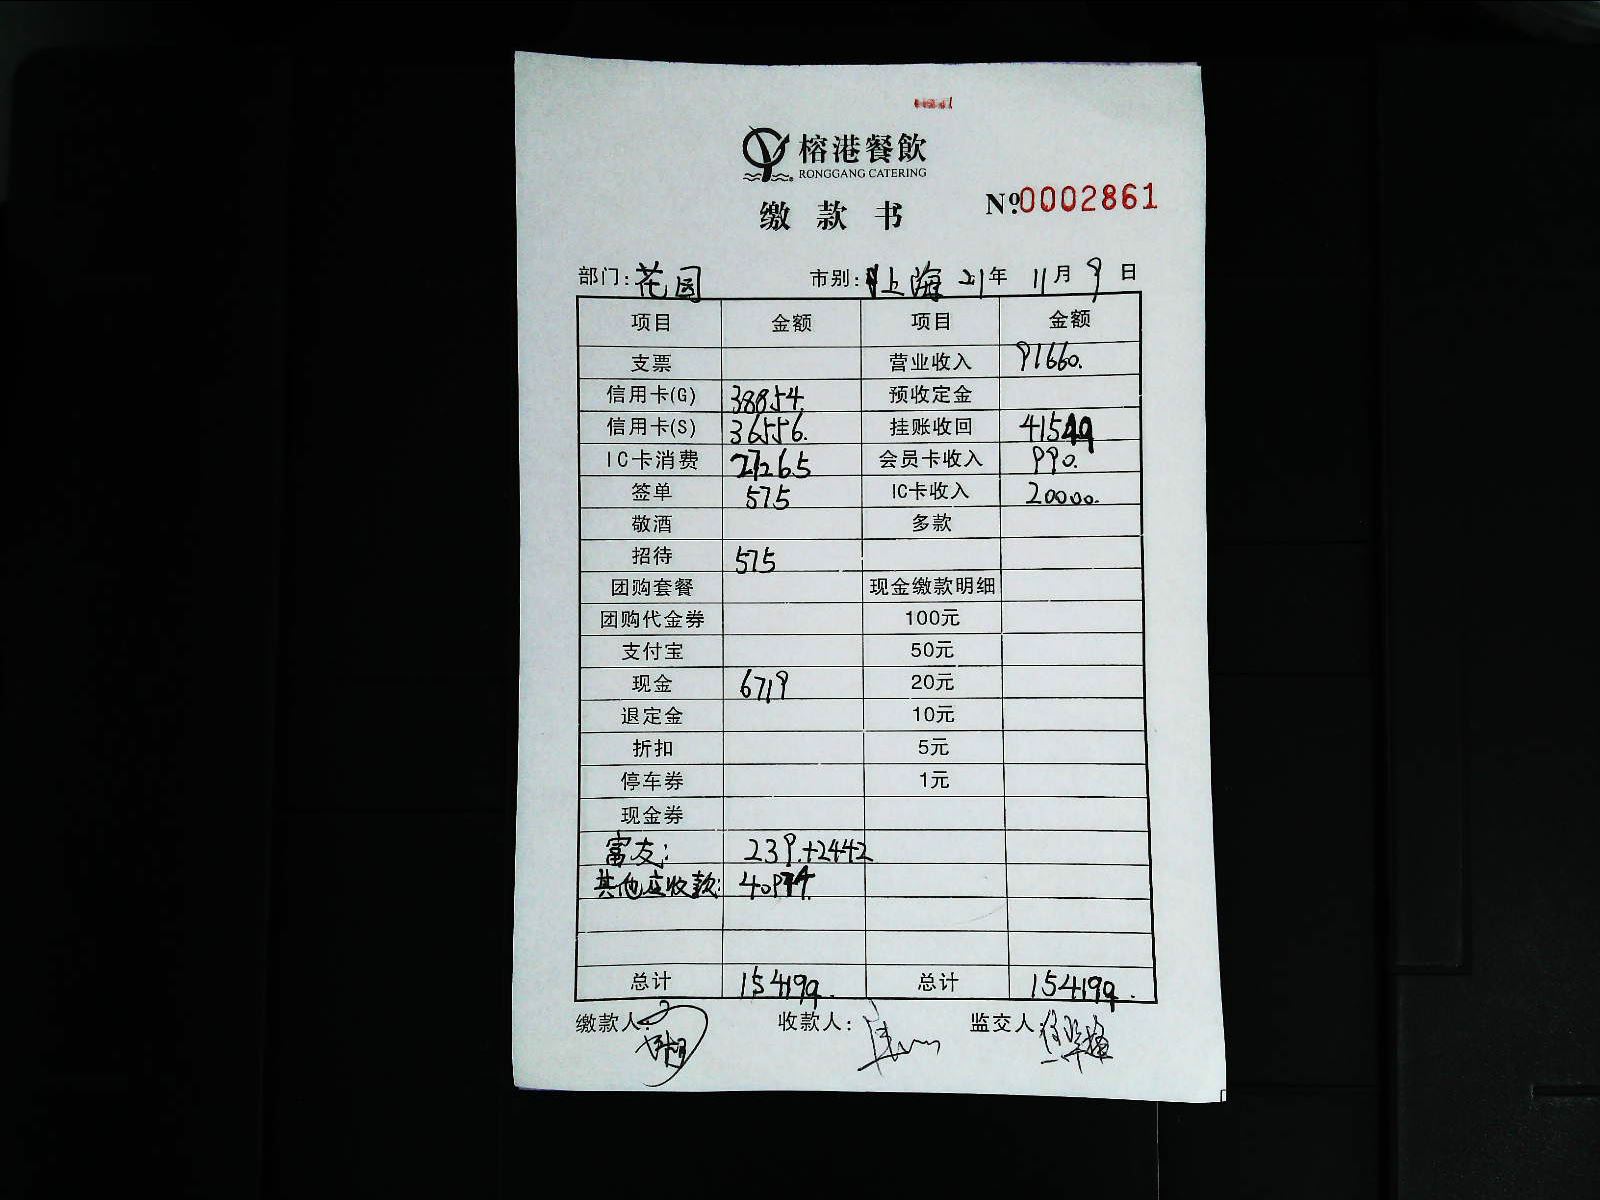 榕港餐飲
RONGGANG CATERING
缴款书
Nº.0002861
部门:花园 市别:上海 21年 11月 9日
项目 金额 项目 金额
支票 营业收入 91660.
信用卡(G) 38854. 预收定金
信用卡(S) 36556. 挂账收回 41549
IC卡消费 27265 会员卡收入 990.
签单 575 IC卡收入 20000.
敬酒 多款
招待 575
团购套餐 现金缴款明细
团购代金券 100元
支付宝 50元
现金 6719 20元
退定金 10元
折扣 5元
停车券 1元
现金券
富友: 239.+2442
其他应收款: 40974.
总计 154199. 总计 154199.
缴款人: 收款人: 监交人: